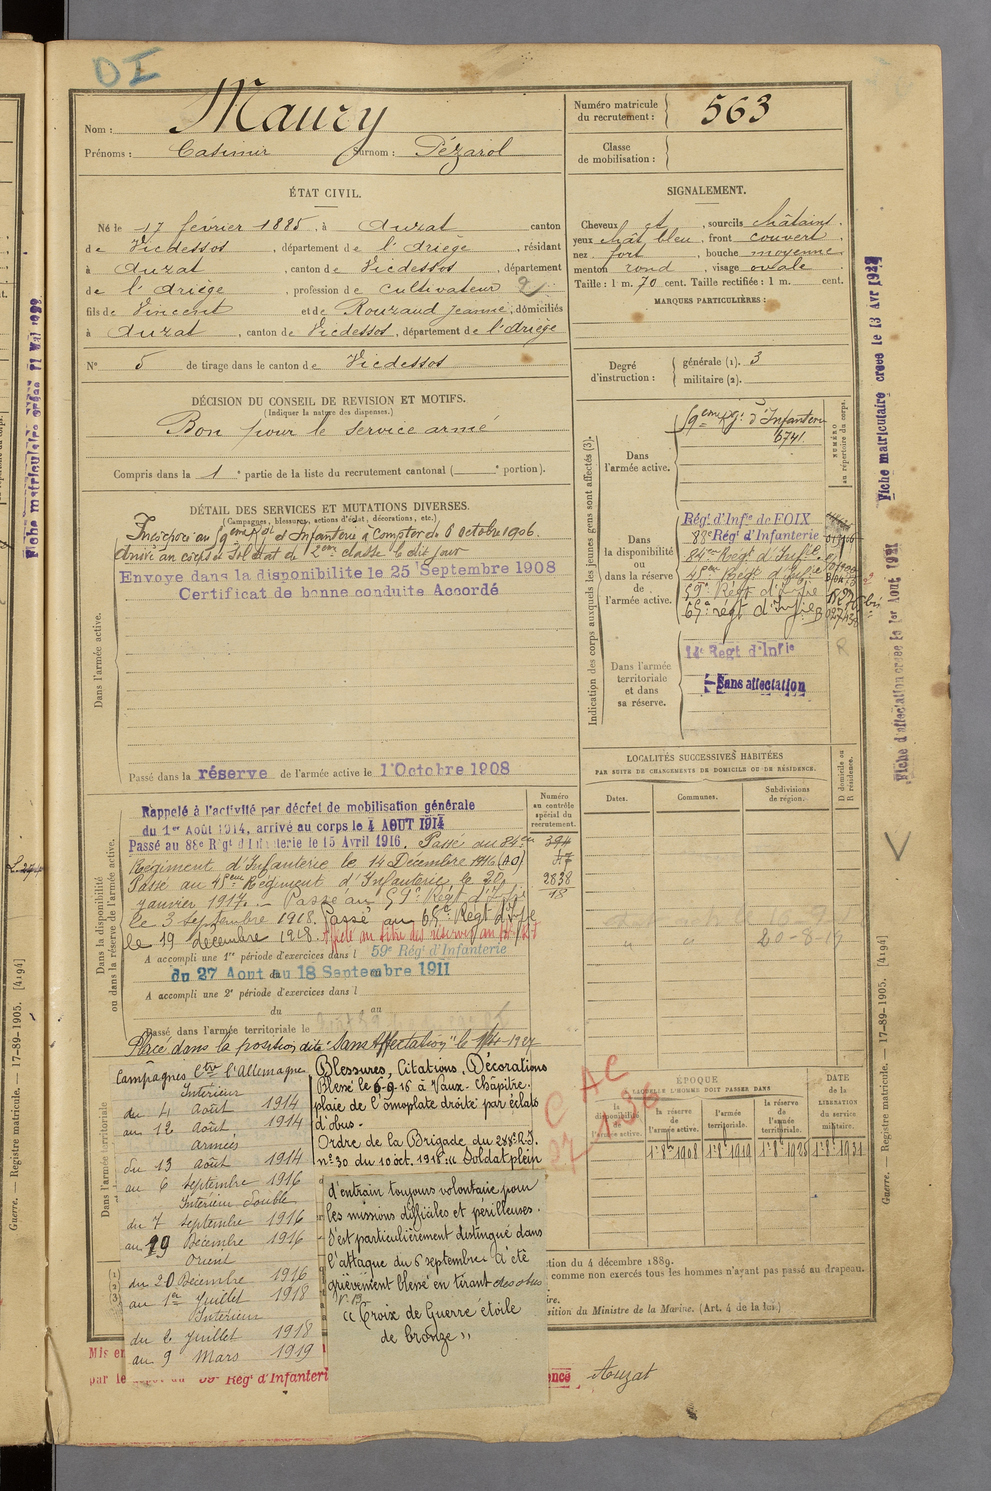 DI
Nom : Maury
Prénoms : Casimir Surnom : Pézarol
Numéro matricule du recrutement : 563
Classe de mobilisation :
ÉTAT CIVIL.
Né le 17 février 1885, à Auzat canton
de Vicdessos, département de l'Ariège, résidant
à Auzat, canton de Vicdessos, département
de l'Ariège, profession de cultivateur 2
fils de Vincent et de Rouzaud Jeanne, domiciliés
à Auzat, canton de Vicdessos, département de l'Ariège
N° 5 de tirage dans le canton de Vicdessos
SIGNALEMENT.
Cheveux et, sourcils châtains.
yeux chât bleu, front couvert,
nez fort, bouche moyenne
menton rond, visage ovale
Taille : 1 m. 70 cent. Taille rectifiée : 1 m. cent.
MARQUES PARTICULIÈRES :
Degré d'instruction : générale (1). 3
militaire (2).
DÉCISION DU CONSEIL DE REVISION ET MOTIFS.
(Indiquer la nature des dispenses.)
Bon pour le service armé
Compris dans la 1e partie de la liste du recrutement cantonal ( e portion).
DÉTAIL DES SERVICES ET MUTATIONS DIVERSES.
(Campagnes, blessures, actions d'éclat, décorations, etc.)
Incorporé au 59eme Rgt d'Infanterie à compter du 6 octobre 1906.
Arrivé au corps et Soldat de 2eme classe le dit jour
Envoye dans la disponibilite le 25 Septembre 1908
Certificat de bonne conduite Accordé
Dans l'armée active.
Passé dans la réserve de l'armée active le 1 Octobre 1908
Indication des corps auxquels les jeunes gens sont affectés (3).
NUMÉRO au répertoire du corps.
Dans l'armée active.
59eme Rgt d'Infanterie
6741
Dans la disponibilité ou dans la réserve de l'armée active.
Régt d'Infie de FOIX
88e Régt d'Infanterie
84eme Régt d'Infie
4eme Régt d'Infie
59e Régt d'Infie
65e régt d'Infie
Dans l'armée territoriale et dans sa réserve.
14e Regt d'Infie
R
Sans affectation
LOCALITÉS SUCCESSIVES HABITÉES
PAR SUITE DE CHANGEMENTS DE DOMICILE OU DE RÉSIDENCE.
Dates. Communes. Subdivisions de région. D domicile ou R résidence.
20-8-19
Dans la disponibilité ou dans la réserve de l'armée active.
Numéro au contrôle spécial du recrutement.
Rappelé à l'activité par décret de mobilisation générale
du 1er Août 1914, arrivé au corps le 4 AOUT 1914
Passé au 88e Régt d'Infanterie le 15 Avril 1916. Passé au 84eme
Régiment d'Infanterie le 14 Décembre 1916 (AO)
Passé au Régiment d'Infanterie le 20
janvier 1917. Passé au 59e Régt d'Infie
le 3 septembre 1918. Passé au 65e Régt d'Infie
le 19 décembre 1918.
2838
18
A accompli une 1re période d'exercices dans l 59e Régt d'Infanterie
du 27 Aout au 18 Septembre 1911
A accompli une 2e période d'exercices dans l
du au
Passé dans l'armée territoriale le
Placé dans la position dite "Sans Affectation" le
Dans l'armée territoriale
Campagnes Ctre l'Allemagne
Intérieur
du 4 Août 1914
au 12 Août 1914
Armées
du 13 Août 1914
au 6 Septembre 1916
Intérieur double
du 7 Septembre 1916
au 19 Décembre 1916
Orient
du 20 Décembre 1916
au 1er Juillet 1918
Intérieur
du 2 Juillet 1918
au 9 Mars 1919
Blessures, Citations, Décorations
Blessé le 6-9-16 à Vaux-Chapitre.
plaie de l'omoplate droite par éclats
d'obus.
Ordre de la Brigade du 288e R.I.
n° 30 du 10 oct. 1916 "Soldat plein
d'entrain toujours volontaire pour
les missions difficiles et périlleuses.
S'est particulièrement distingué dans
l'attaque du 6 septembre. A été
grièvement blessé en tirant des obus
V.B
"Croix de Guerre étoile
de bronze"
ÉPOQUE
À LAQUELLE L'HOMME DOIT PASSER DANS
la disponibilité de l'armée active. la réserve de l'armée active. l'armée territoriale. la réserve de l'armée territoriale.
DATE de la LIBÉRATION du service militaire.
1r 8bre 1908 1r 8 1919 1r 8 1925 1r 8 1931
tion du 4 décembre 1889.
comme non exercés tous les hommes n'ayant pas passé au drapeau.
sition du Ministre de la Marine. (Art. 4 de la loi.)
Mis en
par le 59e Régt d'Infanteri
Auzat
Fiche matriculaire créée le 13 Avr
Fiche d'affectation créée le 1er Août
Guerre. — Registre matricule. — 17-89-1905. [4194]
Guerre. — Registre matricule. — 17-89-1905. [4194]